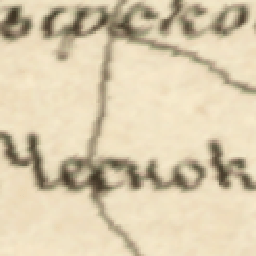 ырско
Чеснок